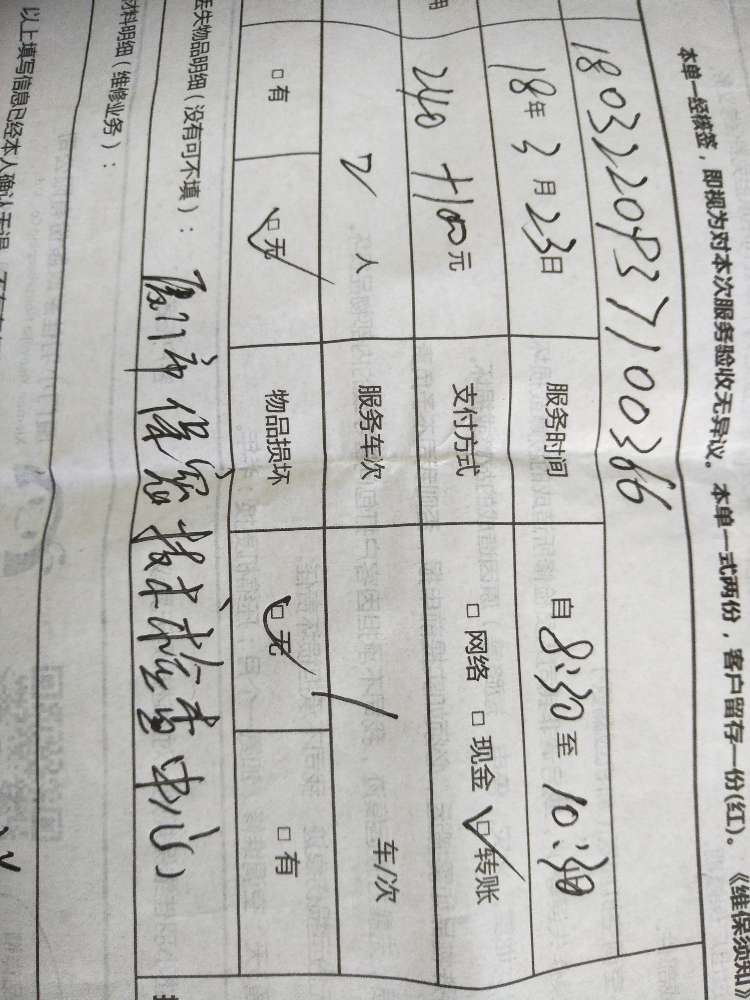 本单一经核签，即视为对本次服务验收无异议。本单一式两份，客户留存一份(红)。《维保须知》
1803220937100366
18年3月23日 服务时间 自8:30至10:30
用 240 元 支付方式 □网络 □现金 ☑转账
2 人 服务车次 1 车/次
□有 ☑无 物品损坏 ☑无 □有
丢失物品明细（没有可不填）：
厦门市保密技术检查中心）
材料明细（维修业务）：
以上填写信息已经本人确认无误，